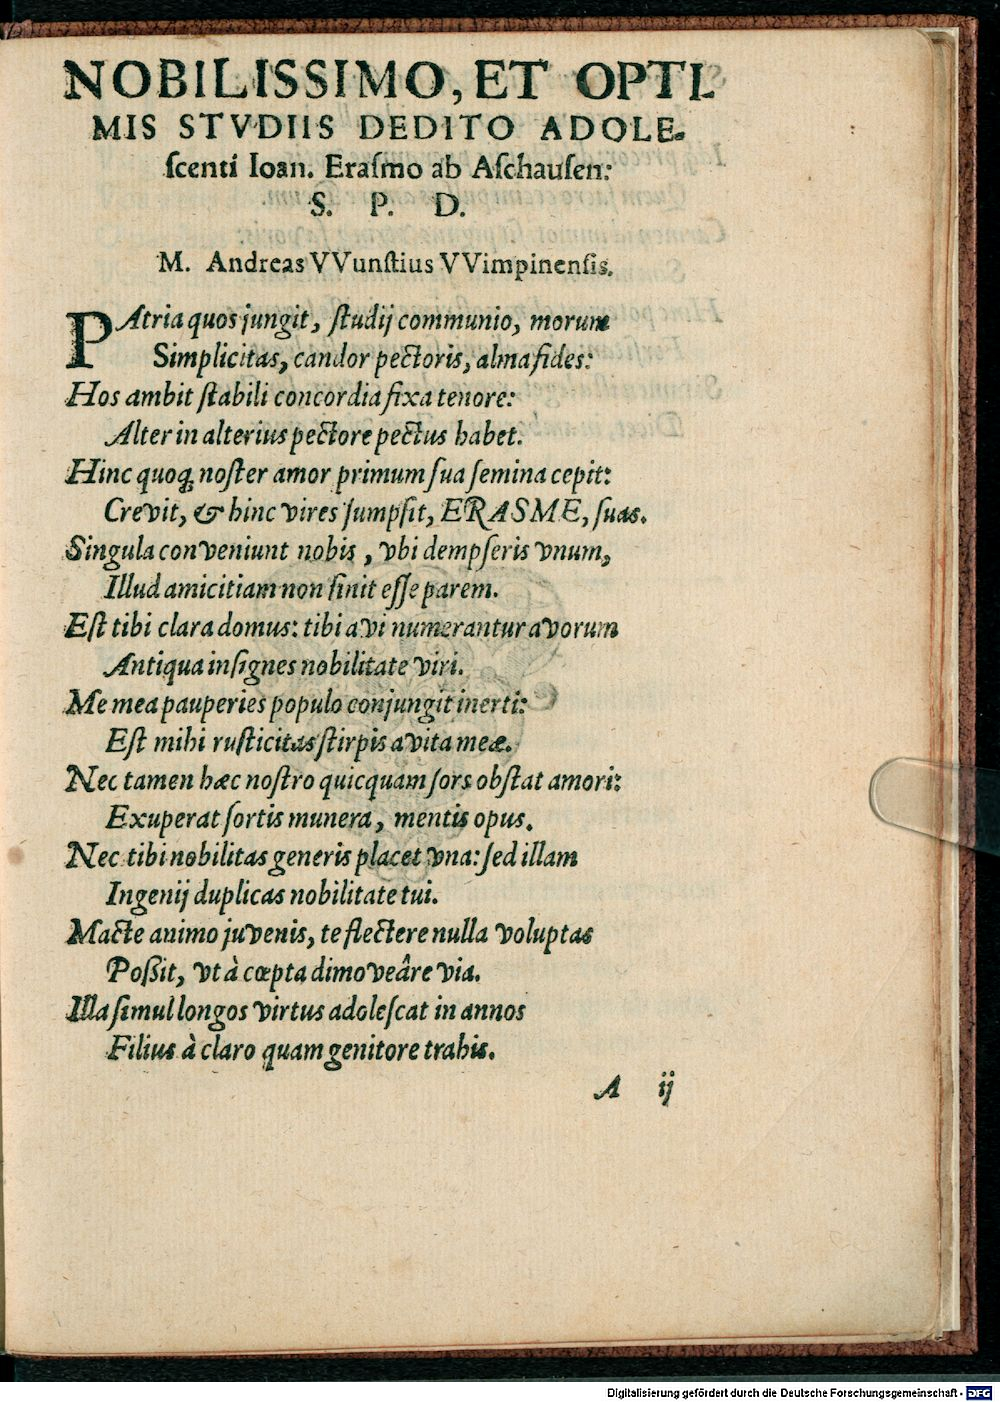 NOBILISSIMO, ET OPTI-
MIS STVDIIS DEDITO ADOLE-
ſcenti Ioan. Eraſmo ab Aſchauſen:
S. P. D.
M. Andreas VVunſtius VVimpinenſis.
PAtria quos jungit, ſtudij communio, morum
Simplicitas, candor pectoris, alma fides:
Hos ambit ſtabili concordia fixa tenore:
Alter in alterius pectore pectus habet.
Hinc quoq; noſter amor primum ſua ſemina cepit:
Crevit, & hinc vires ſumpſit, ERASME, ſuas.
Singula conveniunt nobis, vbi dempſeris vnum,
Illud amicitiam non ſinit eſſe parem.
Eſt tibi clara domus: tibi avi numerantur avorum
Antiqua inſignes nobilitate viri.
Me mea pauperies populo conjungit inerti:
Eſt mihi ruſticitas ſtirpis avita meæ.
Nec tamen hæc noſtro quicquam ſors obſtat amori:
Exuperat ſortis munera, mentis opus.
Nec tibi nobilitas generis placet vna: ſed illam
Ingenij duplicas nobilitate tui.
Macte animo juvenis, te flectere nulla voluptas
Poßit, vt à cœpta dimoveâre via.
Illa ſimul longos virtus adoleſcat in annos
Filius à claro quam genitore trahis.
A ij
Digitalisierung gefördert durch die Deutsche Forschungsgemeinschaft - DFG